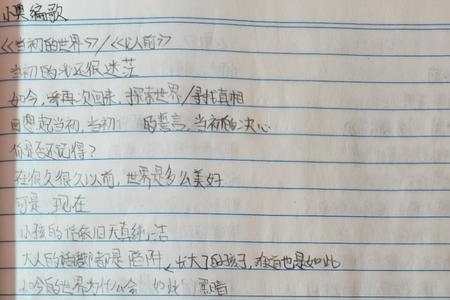 小奥编歌
《当初的世界》/《以前》
当初的我还很迷茫
如今,我再次回来,探索世界/寻找真相
回想起当初,当初 的誓言,当初的决心
你是否还记得?
在很久很久以前,世界是多么美好
可是 现在
小孩的 依旧天真纯洁
大人的 都是陷阱 ,长大了的孩子,难道也是如此
如今的世界为什么会 如此 黑暗